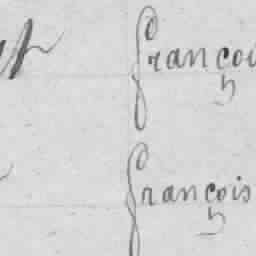 françois
françois